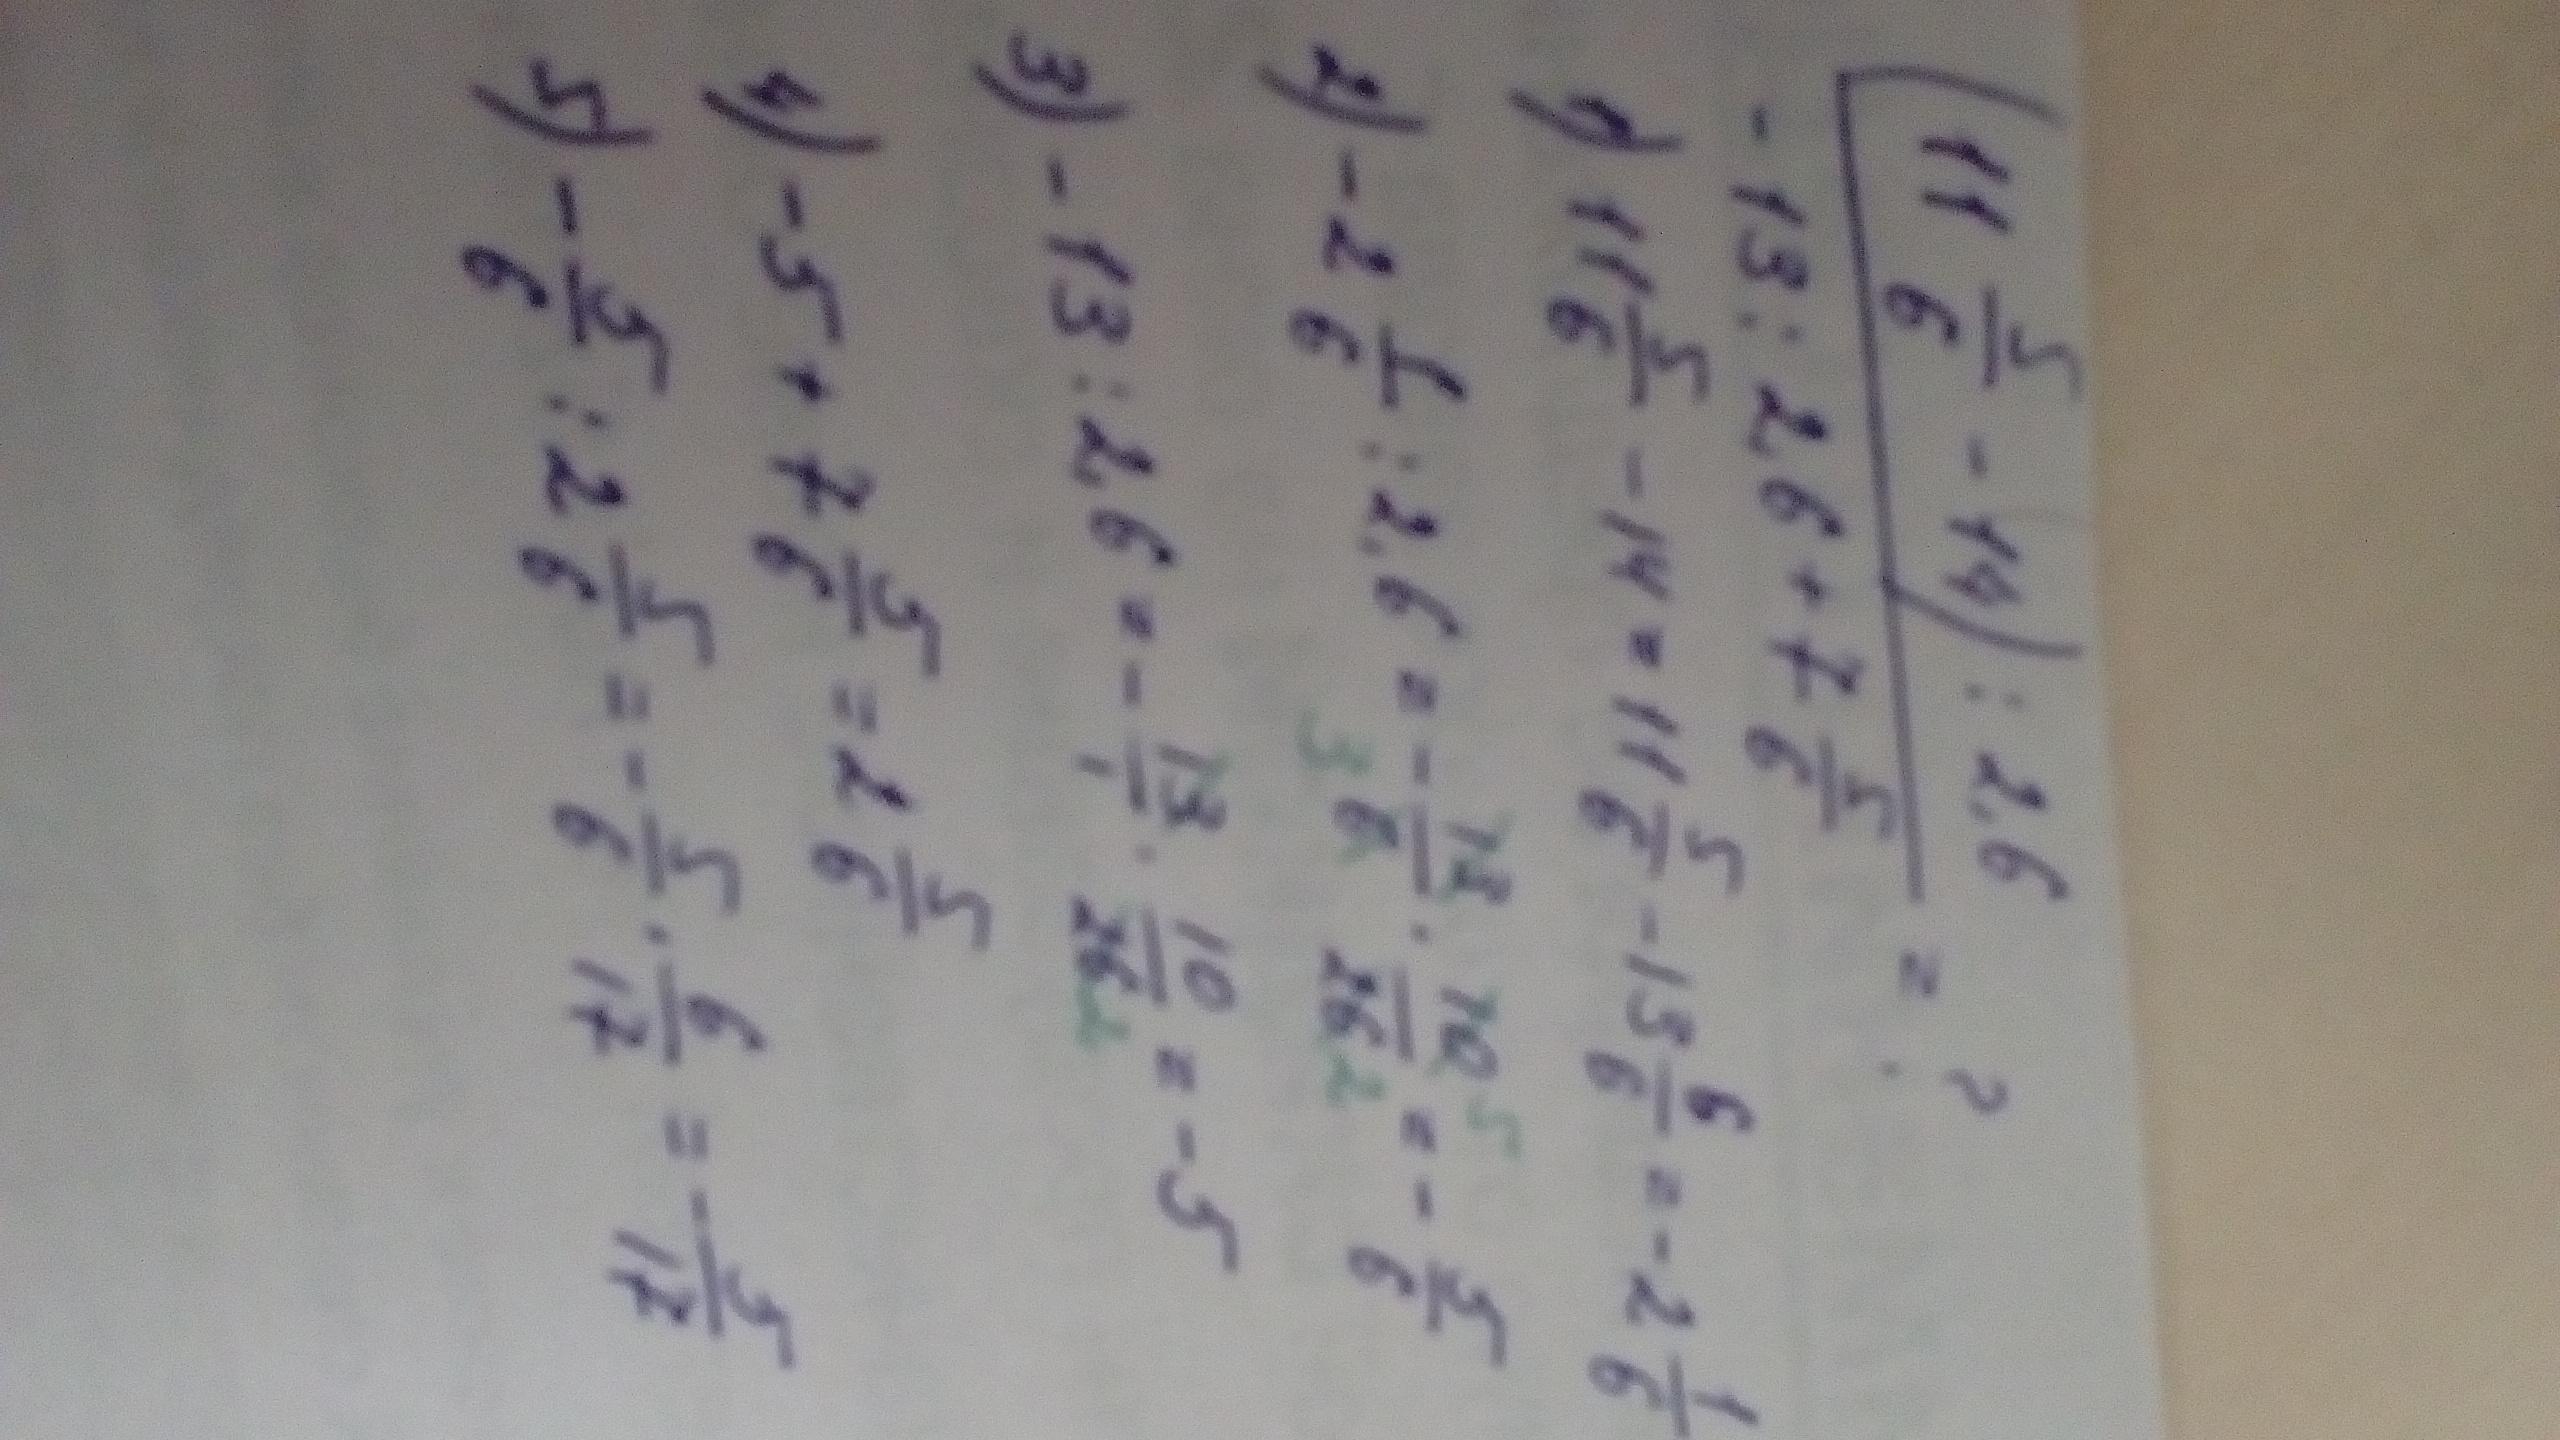 (11 5/6 - 14) : 2.6
-13 : 2.6 + 7 5/6 = ?
1) 11 5/6 - 14 = 11 5/6 - 13 6/6 = -2 1/6
2) -2 1/6 : 2.6 = - 13/6 · 10/26 = - 5/6
3 5 2
3) -13 : 2.6 = - 13/1 · 10/26 = -5
2
4) -5 + 7 5/6 = 2 5/6
5) - 5/6 : 2 5/6 = - 5/6 · 6/17 = - 5/17